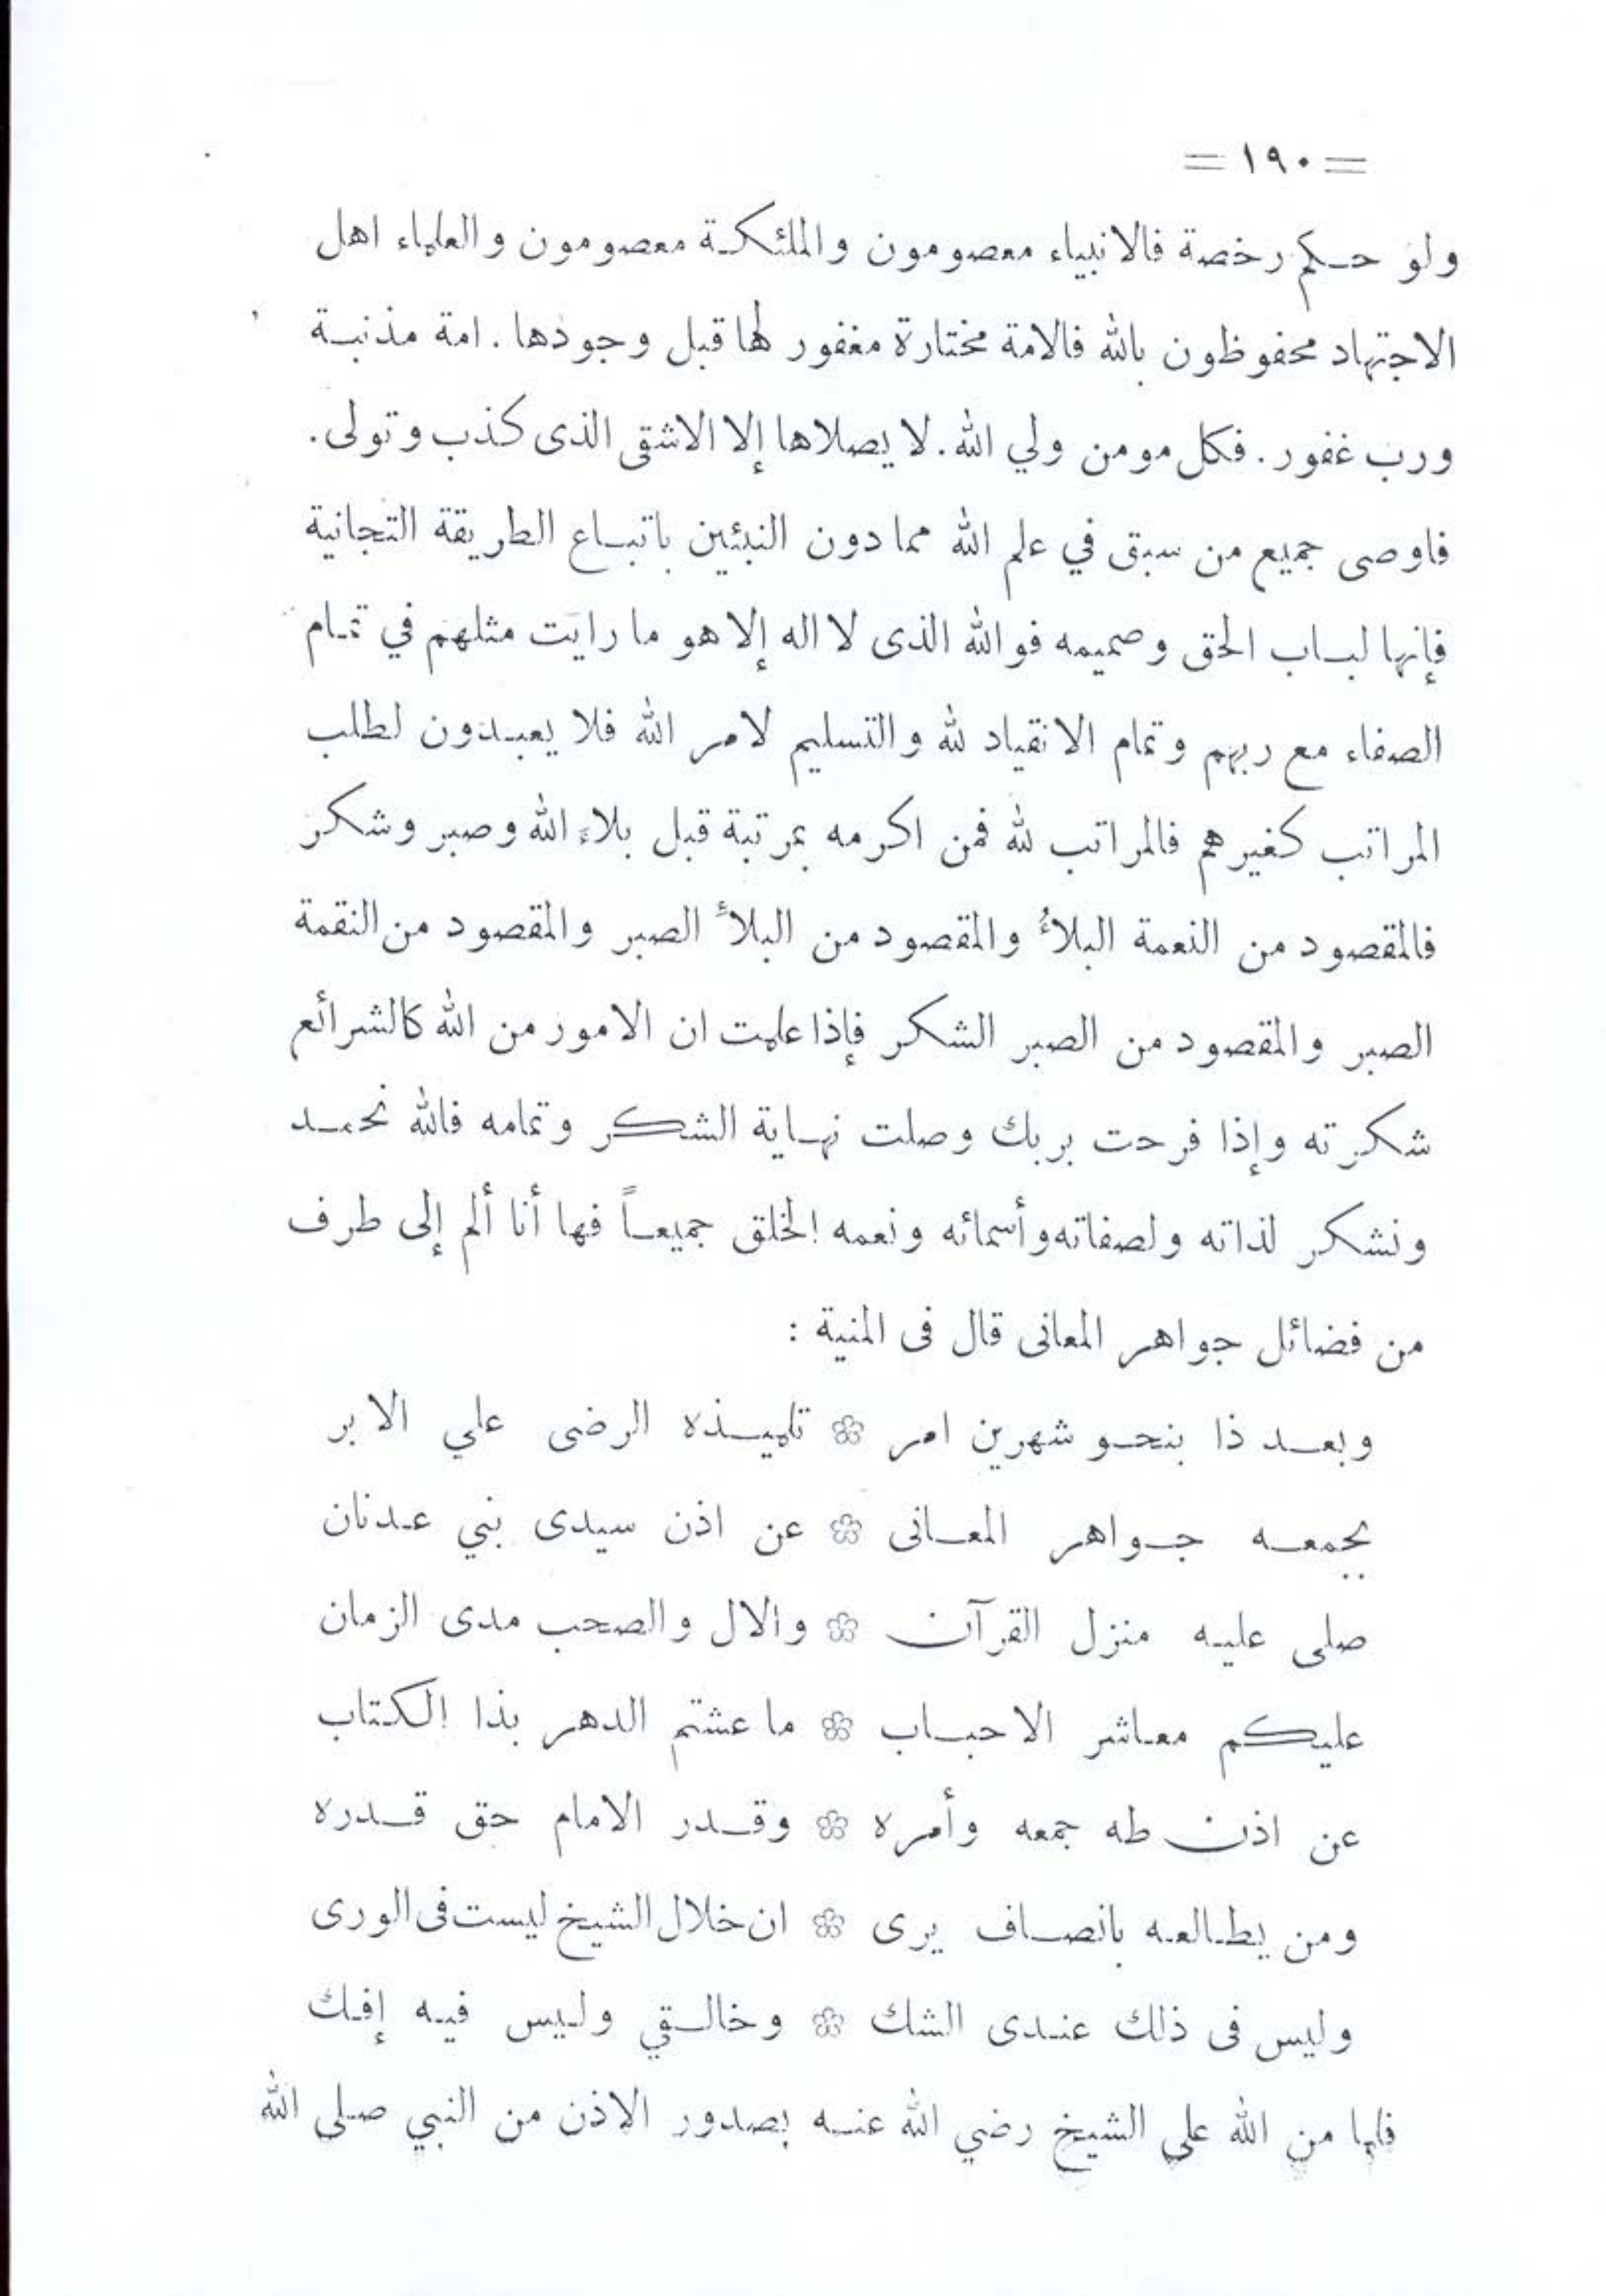 = ١٩٠ =
ولو حكم رخصة فالانبياء معصومون والملئكة معصومون والعلماء اهل
الاجتهاد محفوظون بالله فالامة مختارة مغفور لها قبل وجودها . امة مذنبة
ورب غفور . فكل مومن ولي الله . لا يصلاها إلا الاشقى الذى كذب وتولى .
فاوصى جميع من سبق في علم الله مما دون النبئين باتباع الطريقة التجانية
فإنها لباب الحق وصميمه فوالله الذى لا اله إلا هو ما رايت مثلهم في تمام
الصفاء مع ربهم وتمام الانقياد لله والتسليم لامر الله فلا يعبدون لطلب
المراتب كغيرهم فالمراتب لله فمن اكرمه بمرتبة قبل بلاء الله وصبر وشكر
فالمقصود من النعمة البلأ والمقصود من البلأ الصبر والمقصود من النقمة
الصبر والمقصود من الصبر الشكر فإذا علمت ان الامور من الله كالشرائع
شكرته وإذا فرحت بربك وصلت نهاية الشكر وتمامه فالله نحمد
ونشكر لذاته ولصفاته وأسمائه ونعمه الخلق جميعاً فها أنا ألم إلى طرف
من فضائل جواهر المعانى قال فى المنية :
وبعد ذا بنحو شهرين امر ❀ تلميذه الرضى علي الابر
بجمعه جواهر المعانى ❀ عن اذن سيدى بني عدنان
صلى عليه منزل القرآن ❀ والال والصحب مدى الزمان
عليكم معاشر الاحباب ❀ ما عشتم الدهر بذا الكتاب
عن اذن طه جمعه وأمره ❀ وقدر الامام حق قدره
ومن يطالعه بانصاف يرى ❀ ان خلال الشيخ ليست فى الورى
وليس فى ذلك عندى الشك ❀ وخالقي وليس فيه إفك
فلما من الله على الشيخ رضي الله عنه بصدور الاذن من النبي صلى الله